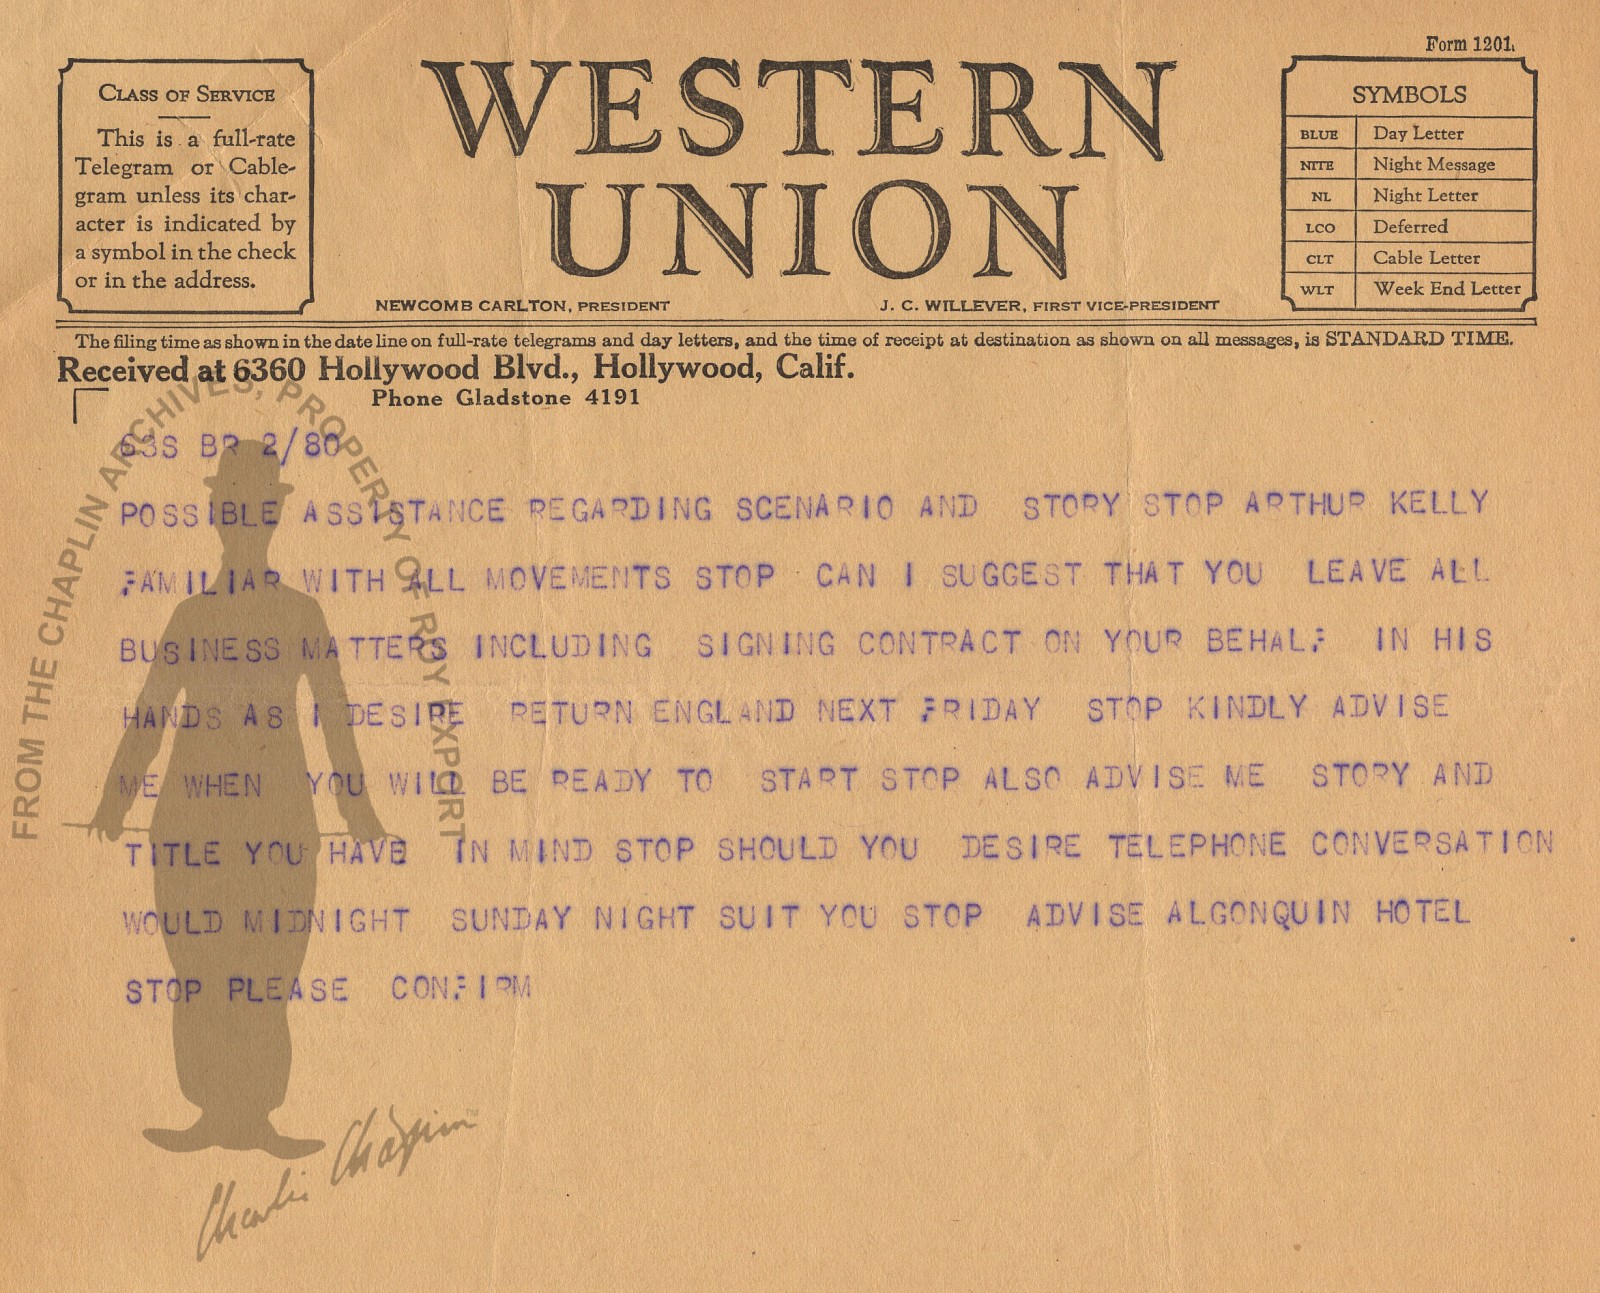 Form 1201.
CLASS OF SERVICE
This is a full-rate
Telegram or Cable-
gram unless its char-
acter is indicated by
a symbol in the check
or in the address.
WESTERN
UNION
NEWCOMB CARLTON, PRESIDENT
J. C. WILLEVER, FIRST VICE-PRESIDENT
SYMBOLS
BLUE Day Letter
NITE Night Message
NL Night Letter
LCO Deferred
CLT Cable Letter
WLT Week End Letter
The filing time as shown in the date line on full-rate telegrams and day letters, and the time of receipt at destination as shown on all messages, is STANDARD TIME.
Received at 6360 Hollywood Blvd., Hollywood, Calif.
Phone Gladstone 4191
63S BR 2/80
POSSIBLE ASSISTANCE REGARDING SCENARIO AND STORY STOP ARTHUR KELLY
FAMILIAR WITH ALL MOVEMENTS STOP CAN I SUGGEST THAT YOU LEAVE ALL
BUSINESS MATTERS INCLUDING SIGNING CONTRACT ON YOUR BEHALF IN HIS
HANDS AS I DESIRE RETURN ENGLAND NEXT FRIDAY STOP KINDLY ADVISE
ME WHEN YOU WILL BE READY TO START STOP ALSO ADVISE ME STORY AND
TITLE YOU HAVE IN MIND STOP SHOULD YOU DESIRE TELEPHONE CONVERSATION
WOULD MIDNIGHT SUNDAY NIGHT SUIT YOU STOP ADVISE ALGONQUIN HOTEL
STOP PLEASE CONFIRM
FROM THE CHAPLIN ARCHIVES, PROPERTY OF ROY EXPORT
Charlie Chaplin